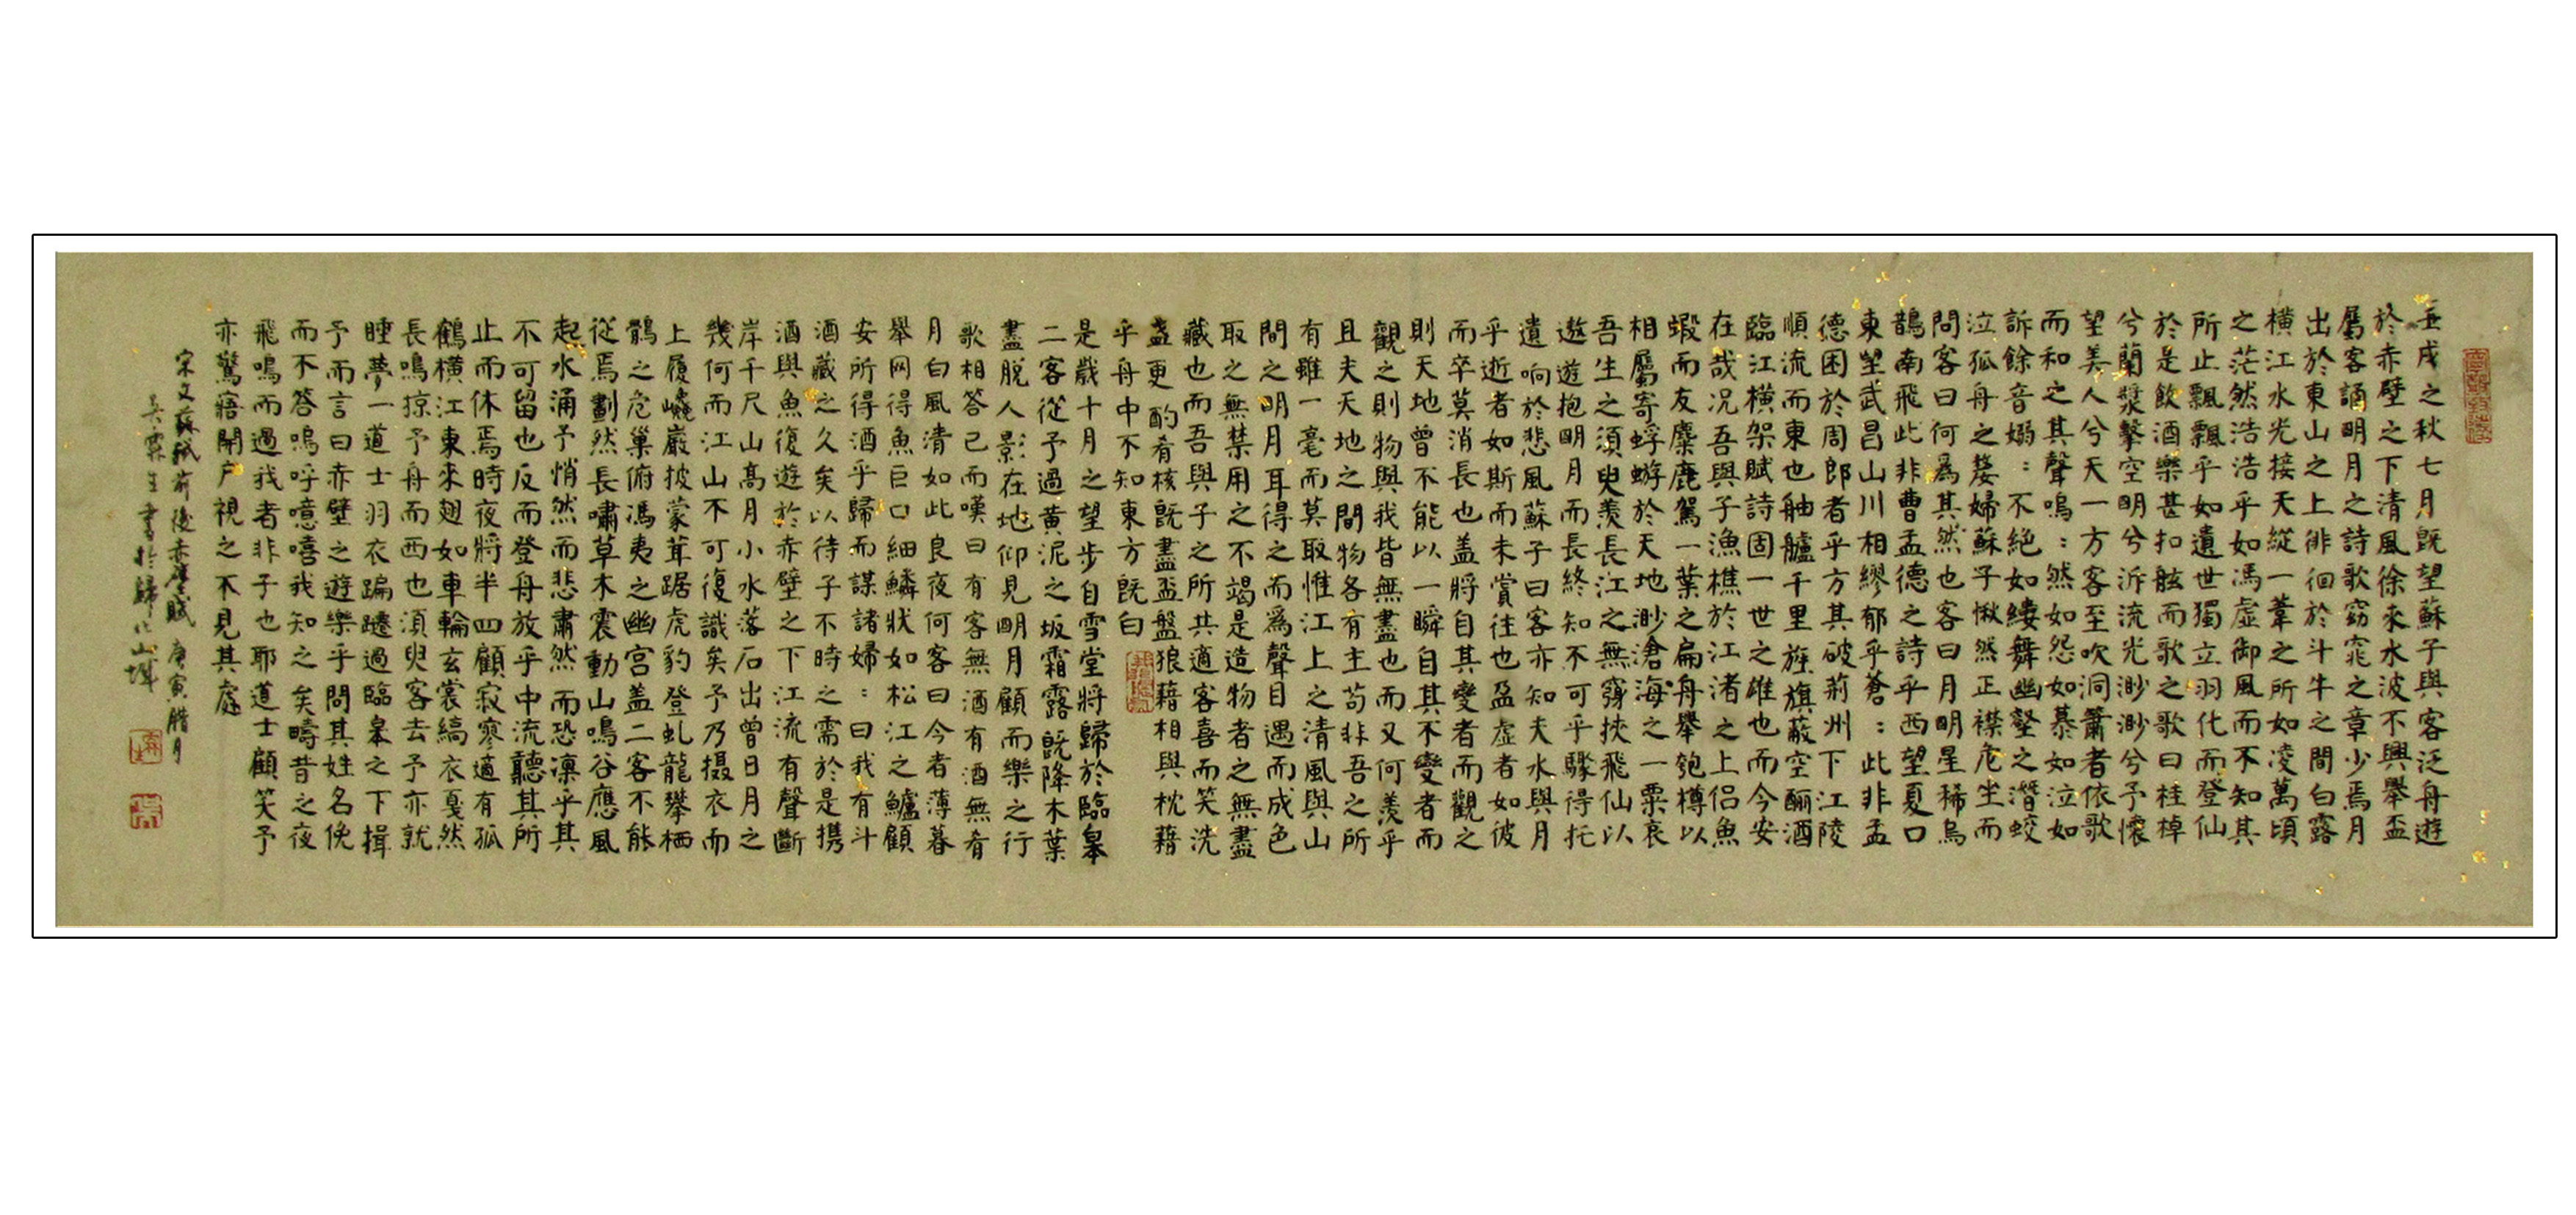 壬戌之秋七月既望蘇子與客泛舟遊
於赤壁之下清風徐來水波不興舉盃
屬客誦明月之詩歌窈窕之章少焉月
出於東山之上徘徊於斗牛之間白露
橫江水光接天縱一葦之所如凌萬頃
之茫然浩浩乎如馮虛御風而不知其
所止飄飄乎如遺世獨立羽化而登仙
於是飲酒樂甚扣舷而歌之歌曰桂棹
兮蘭槳擊空明兮泝流光渺渺兮予懷
望美人兮天一方客至吹洞簫者依歌
而和之其聲嗚：然如怨如慕如泣如
訴餘音嫋：不絕如縷舞幽壑之潛蛟
泣孤舟之嫠婦蘇子愀然正襟危坐而
問客曰何爲其然也客曰月明星稀烏
鵲南飛此非曹孟德之詩乎西望夏口
東望武昌山川相繆郁乎蒼：此非孟
德困於周郎者乎方其破荊州下江陵
順流而東也舳艫千里旌旗蔽空酾酒
臨江橫架賦詩固一世之雄也而今安
在哉况吾與子漁樵於江渚之上侶魚
蝦而友麋鹿駕一葉之扁舟舉匏樽以
相屬寄蜉蝣於天地渺滄海之一粟哀
吾生之須臾羨長江之無窮挾飛仙以
遨遊抱明月而長終知不可乎驟得托
遺响於悲風蘇子曰客亦知夫水與月
乎逝者如斯而未嘗往也盈虛者如彼
而卒莫消長也盖將自其變者而觀之
則天地曾不能以一瞬自其不變者而
觀之則物與我皆無盡也而又何羨乎
且夫天地之間物各有主苟非吾之所
有雖一毫而莫取惟江上之清風與山
間之明月耳得之而爲聲目遇而成色
取之無禁用之不竭是造物者之無盡
藏也而吾與子之所共適客喜而笑洗
盞更酌肴核既盡盃盤狼藉相與枕藉
乎舟中不知東方既白
是歲十月之望步自雪堂將歸於臨皋
二客從予過黃泥之坂霜露既降木葉
盡脫人影在地仰見明月顧而樂之行
歌相答已而嘆曰有客無酒有酒無肴
月白風清如此良夜何客曰今者薄暮
舉网得魚巨口細鱗狀如松江之鱸顧
安所得酒乎歸而謀諸婦：曰我有斗
酒藏之久矣以待子不時之需於是携
酒與魚復遊於赤壁之下江流有聲斷
岸千尺山高月小水落石出曾日月之
幾何而江山不可復識矣予乃摄衣而
上履巉巖披蒙茸踞虎豹登虬龍攀栖
鶻之危巢俯馮夷之幽宮盖二客不能
從焉劃然長嘯草木震動山鳴谷應風
起水涌予悄然而悲肅然而恐凛乎其
不可留也反而登舟放乎中流聽其所
止而休焉時夜將半四顧寂寥適有孤
鶴橫江東來翅如車輪玄裳縞衣戛然
長鳴掠予舟而西也須臾客去予亦就
睡夢一道士羽衣蹁躚過臨皋之下揖
予而言曰赤壁之遊樂乎問其姓名俛
而不答嗚呼噫嘻我知之矣疇昔之夜
飛鳴而過我者非子也耶道士顧笑予
亦驚寤開户視之不見其處
宋文蘇軾前後赤壁賦 庚寅腊月
吳霖生書於歸化山墀